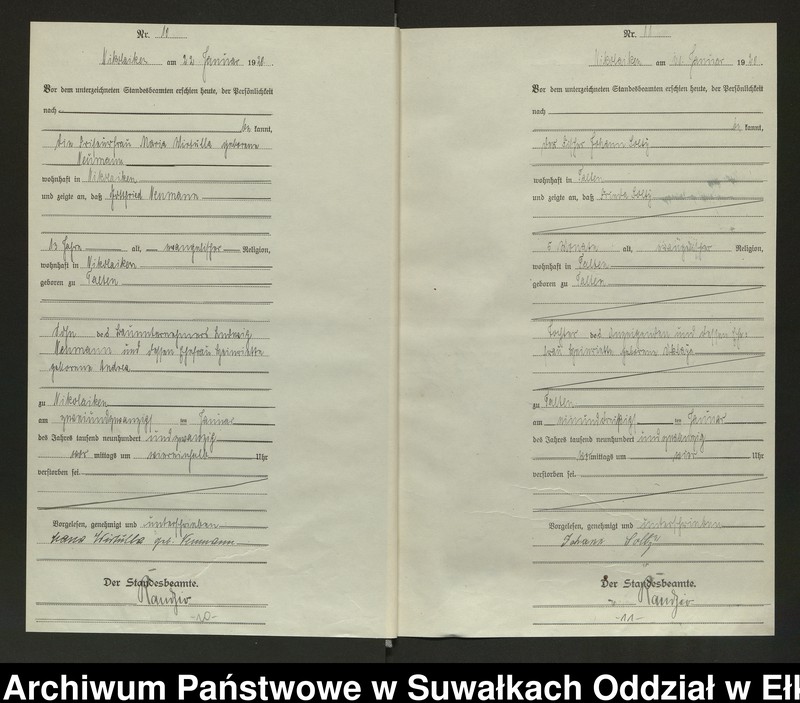 Nr. 10
Nikolaiken am 22 Januar 1920.
Vor dem unterzeichneten Standesbeamten erschien heute, der Persönlichkeit
nach
be kannt,
die Friseurfrau Maria geborene
Neumann
wohnhaft in Nikolaiken
und zeigte an, daß Gottfried Neumann
13 Jahre alt, evangelischer Religion,
wohnhaft in Nikolaiken
geboren zu Talten
Sohn des Bauunternehmers Ludwig
Neumann und dessen Ehefrau Henriette
geborene
zu Nikolaiken
am zweiundzwanzigsten Januar
des Jahres tausend neunhundert und zwanzig
vor mittags um Uhr
verstorben sei.
Vorgelesen, genehmigt und unterschrieben
geb. Neumann
Der Standesbeamte.
-10-
Nr. 11
Nikolaiken am Januar 1920.
Vor dem unterzeichneten Standesbeamten erschien heute, der Persönlichkeit
nach
be kannt,
der Johann
wohnhaft in Talten
und zeigte an, daß
Monate alt, evangelischer Religion,
wohnhaft in Talten
geboren zu Talten
Tochter des Anzeigenden und dessen Ehe-
frau Henriette geborene
zu Talten
am Januar
des Jahres tausend neunhundert und zwanzig
mittags um vier Uhr
verstorben sei.
Vorgelesen, genehmigt und unterschrieben
Johann
Der Standesbeamte.
-11-
Archiwum Państwowe w Suwałkach Oddział w Ełk